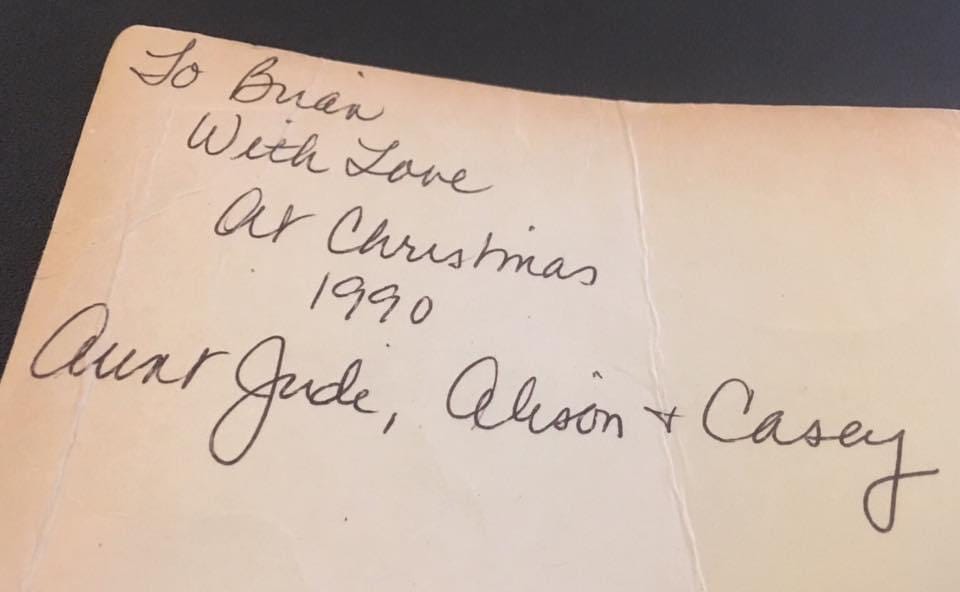 To Brian
With Love
At Christmas
1990
Aunt Jude, Alison + Casey